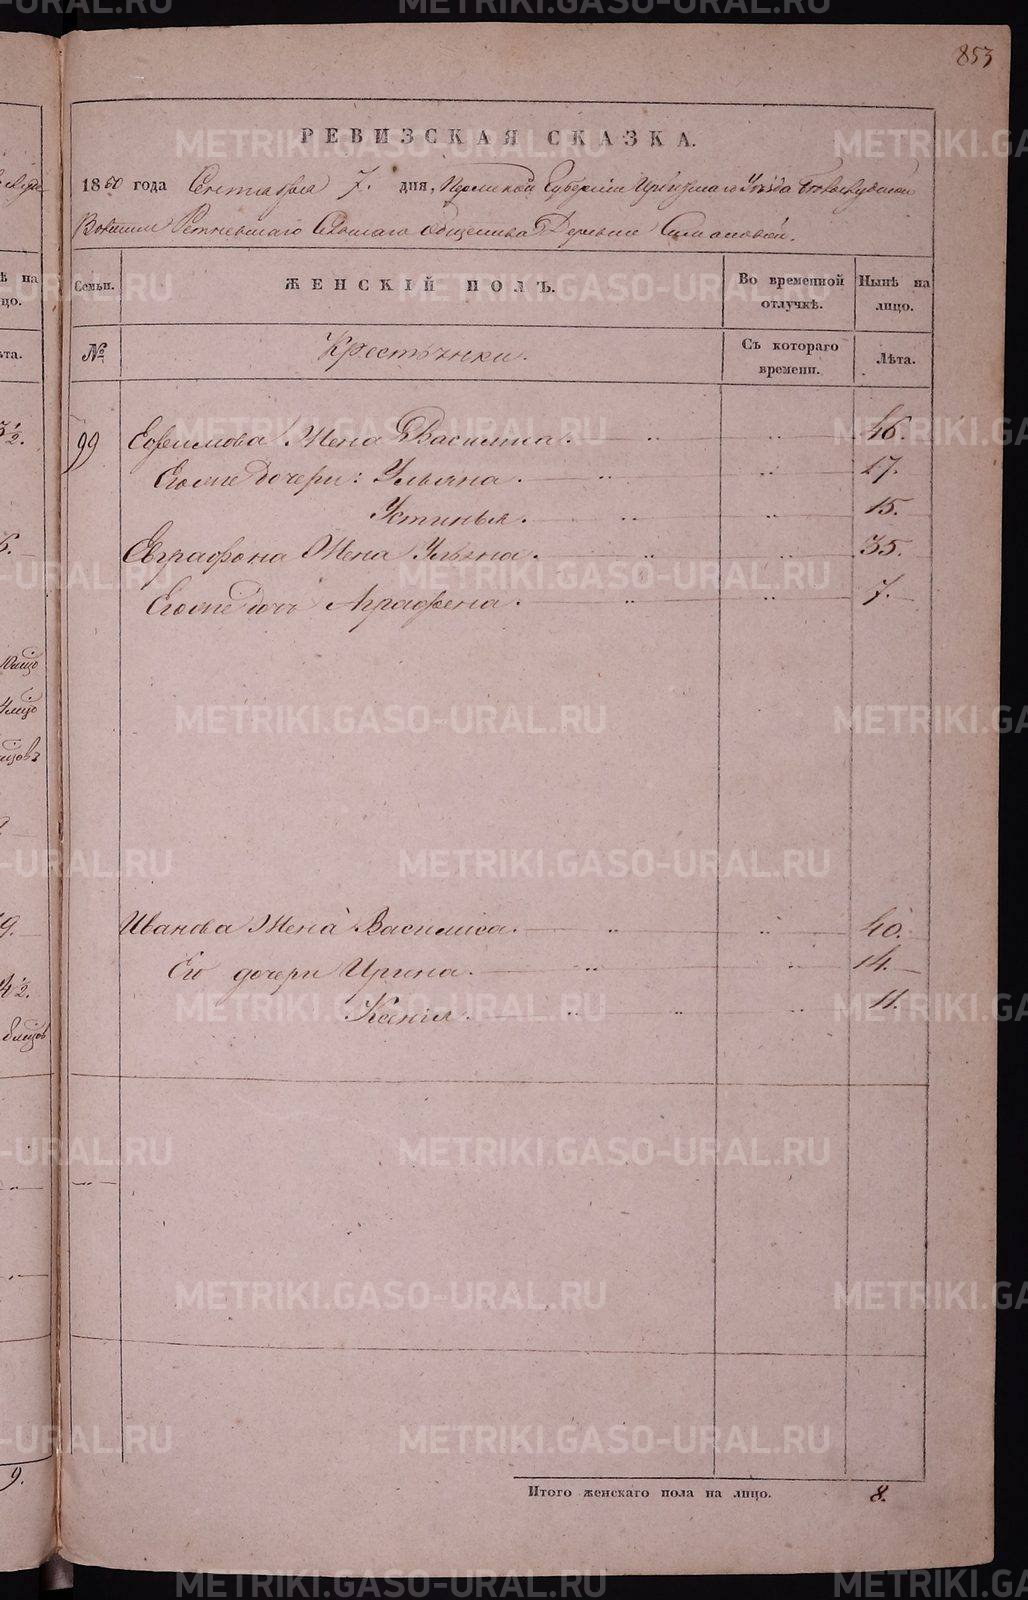 853
РЕВИЗСКАЯ СКАЗКА.
1860 года Сентября 7. дня, Пермской Губернiи Ирбитскаго Уѣзда
Волости Сельскаго общества Деревни Симановой.
Семьи. ЖЕНСКIЙ ПОЛЪ. Во временной отлучкѣ. Нынѣ на лицо.
№ Крестьянки. Съ котораго времени. Лѣта.
99 Ефимова Жена Василиса. 46.
Его же дочери: Ульяна. 17.
Устинья. 15.
Евграфова Жена Ульяна. 35.
Его же дочь Аграфена. 7.
Иванова Жена Василиса. 40.
Его дочери Ирина. 14.
Ксенiя. 11.
Итого женскаго пола на лицо. 8.
METRIKI.GASO-URAL.RU